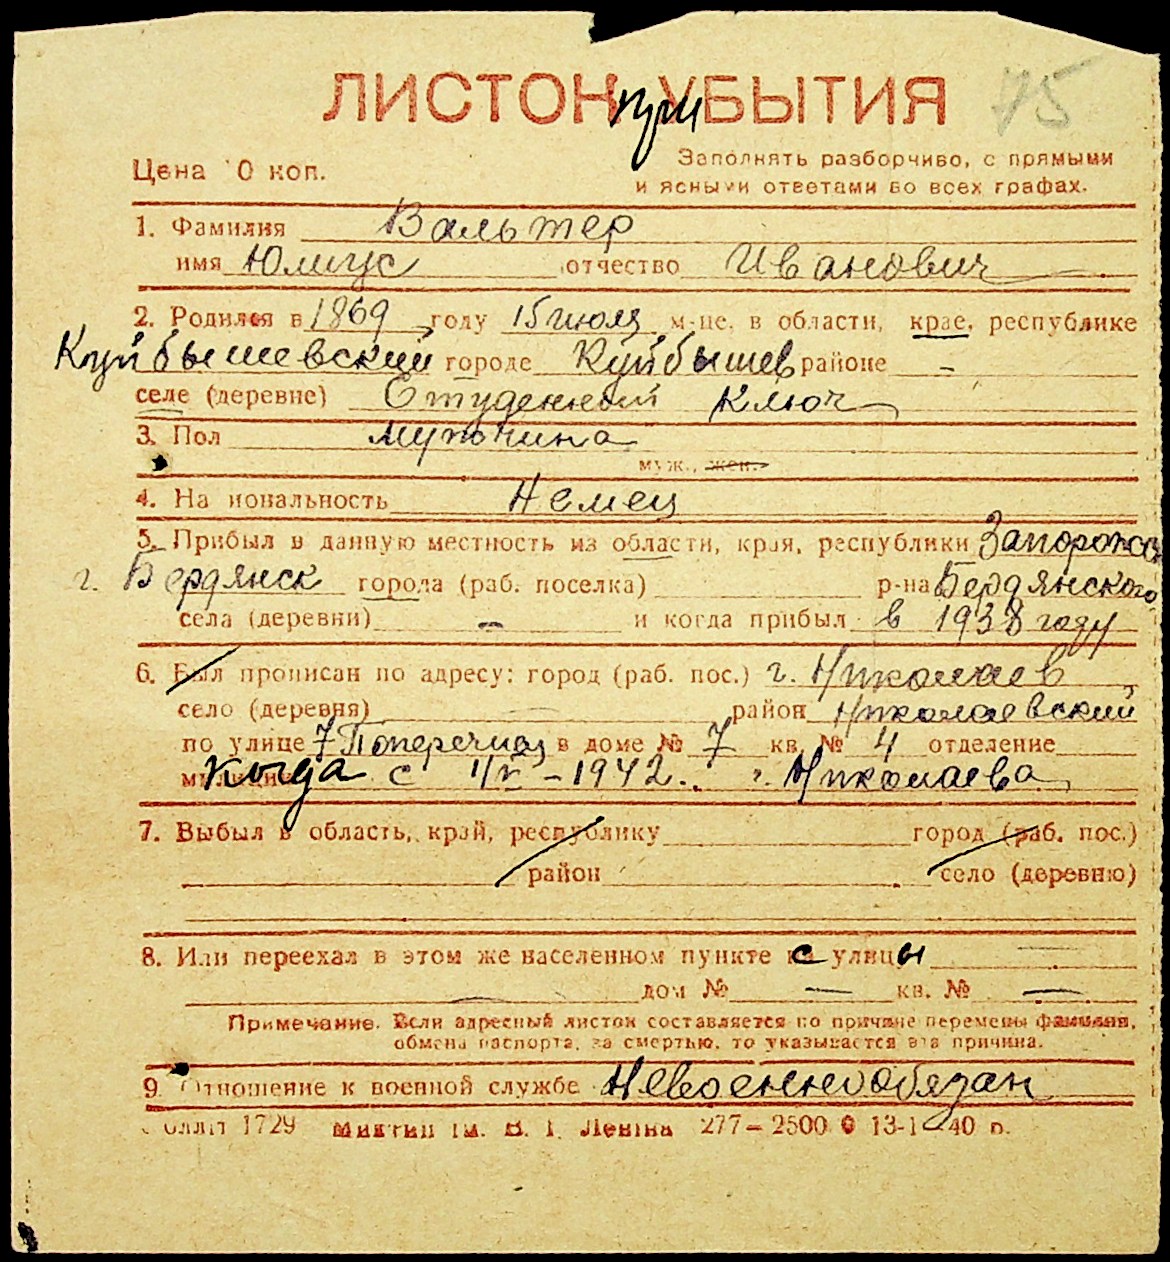 75
ЛИСТОК при УБЫТИЯ
Цена 0 коп.
Заполнять разборчиво, с прямыми
и ясными ответами во всех графах.
1. Фамилия Вальтер
имя Юлиус отчество Иванович
2. Родился в 1869 году 15 июля м-це, в области, крае, республике
Куйбышевский городе Куйбышев районе -
селе (деревне) Студенный Ключ
3. Пол мужчина
муж., жен.
4. На иональность Немец
5. Прибыл в данную местность из области, края, республики Запорожс
г. Бердянск города (раб. поселка) р-на Бердянского
села (деревни) - и когда прибыл в 1938 году
6. Был прописан по адресу: город (раб. пос.) г. Николаев
село (деревня) район Николаевский
по улице 7 Поперечная в доме № 7 кв. № 4 отделение
когда с 1942. г. Николаева
7. Выбыл в область, край, республику город (раб. пос.)
район село (деревню)
8. Или переехал в этом же населенном пункте с улицы —
— дом № — кв. № —
Примечание. Если адресный листок составляется по причине перемены фамилии,
обмена паспорта, за смертью, то указывается эта причина.
9. Отношение к военной службе Невоеннообязан
1729 ім. В. І. Леніна 277—2500 13-1—40 р.